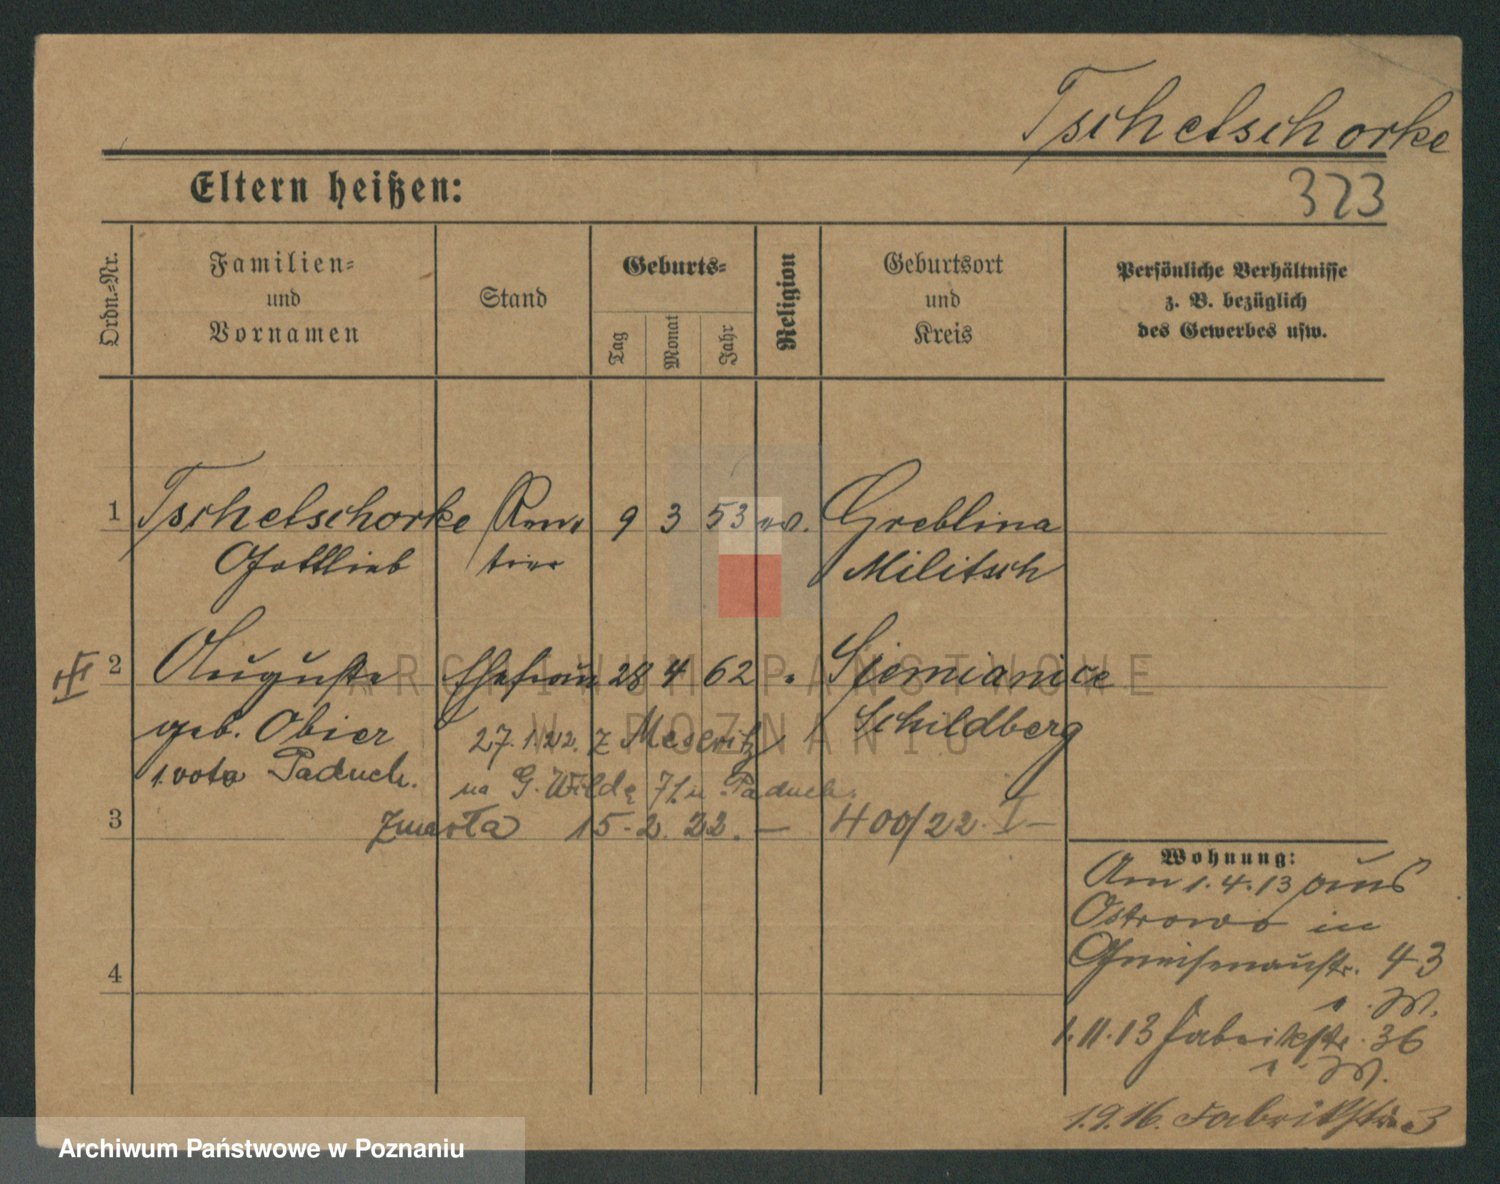 Tschelschorke
Eltern heißen:
323
Ordn.=Nr.
Familien=
und
Vornamen
Stand
Geburts=
Tag
Monat
Jahr
Religion
Geburtsort
und
Kreis
Persönliche Verhältnisse
z. B. bezüglich
des Gewerbes usw.
1 Tschelschorke Ren 9 3 53 ev. Greblina
Gottlieb tier Militsch
2 Auguste Ehefrau 28 4 62 " Siemianice
geb. Obier Schildberg
27.1.22. z Meseritz
1. voto Paduch.
na G. Wildę 71 u. Paduch.
3 zmarła 15.2.22. — 400/22. I —
4
Wohnung:
Am 1.4.13 aus
Ostrowo in
Gneisenaustr. 43
W.
1.11.13 Fabrikstr. 36
W.
1.9.16. Fabrikstr. 3
ARCHIWUM PAŃSTWOWE
W POZNANIU
Archiwum Państwowe w Poznaniu